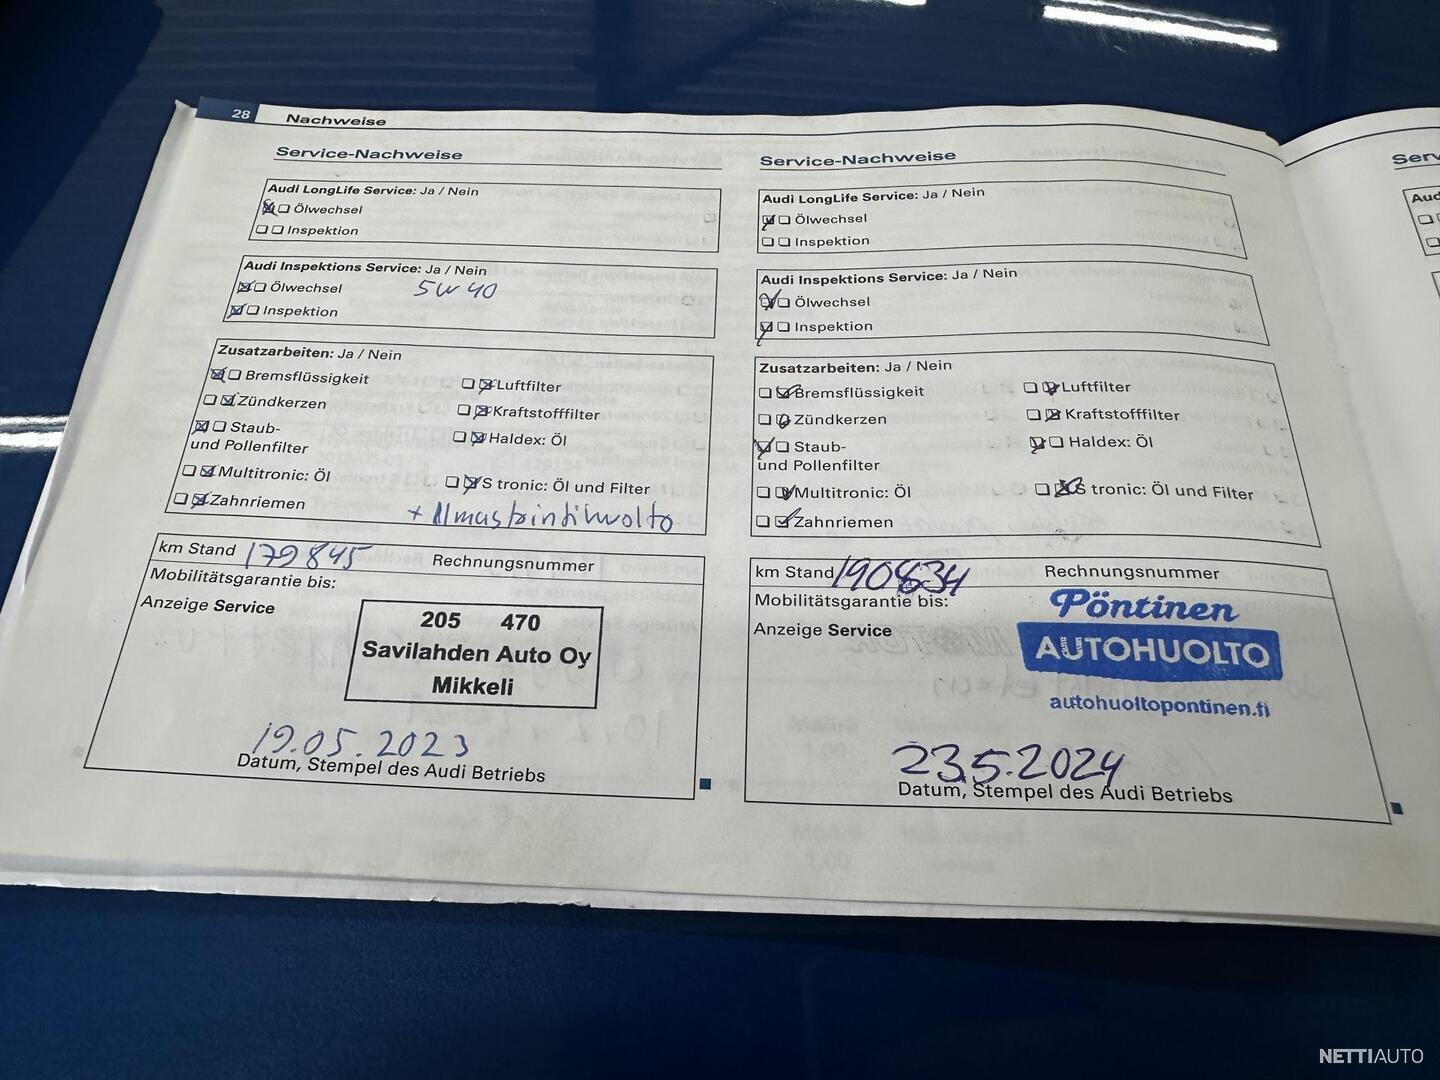 28 Nachweise
Service-Nachweise
Audi LongLife Service: Ja / Nein
Ölwechsel
Inspektion
Audi Inspektions Service: Ja / Nein
Ölwechsel 5W40
Inspektion
Zusatzarbeiten: Ja / Nein
Bremsflüssigkeit Luftfilter
Zündkerzen Kraftstofffilter
Staub- Haldex: Öl
und Pollenfilter
Multitronic: Öl S tronic: Öl und Filter
Zahnriemen + Ilmastointihuolto
km Stand 179845 Rechnungsnummer
Mobilitätsgarantie bis:
Anzeige Service
205 470
Savilahden Auto Oy
Mikkeli
19.05.2023
Datum, Stempel des Audi Betriebs
Service-Nachweise
Audi LongLife Service: Ja / Nein
Ölwechsel
Inspektion
Audi Inspektions Service: Ja / Nein
Ölwechsel
Inspektion
Zusatzarbeiten: Ja / Nein
Bremsflüssigkeit Luftfilter
Zündkerzen Kraftstofffilter
Staub- Haldex: Öl
und Pollenfilter
Multitronic: Öl S tronic: Öl und Filter
Zahnriemen
km Stand 190834 Rechnungsnummer
Mobilitätsgarantie bis:
Anzeige Service
Pöntinen
AUTOHUOLTO
autohuoltopontinen.fi
23.5.2024
Datum, Stempel des Audi Betriebs
Serv
Aud
NETTIAUTO